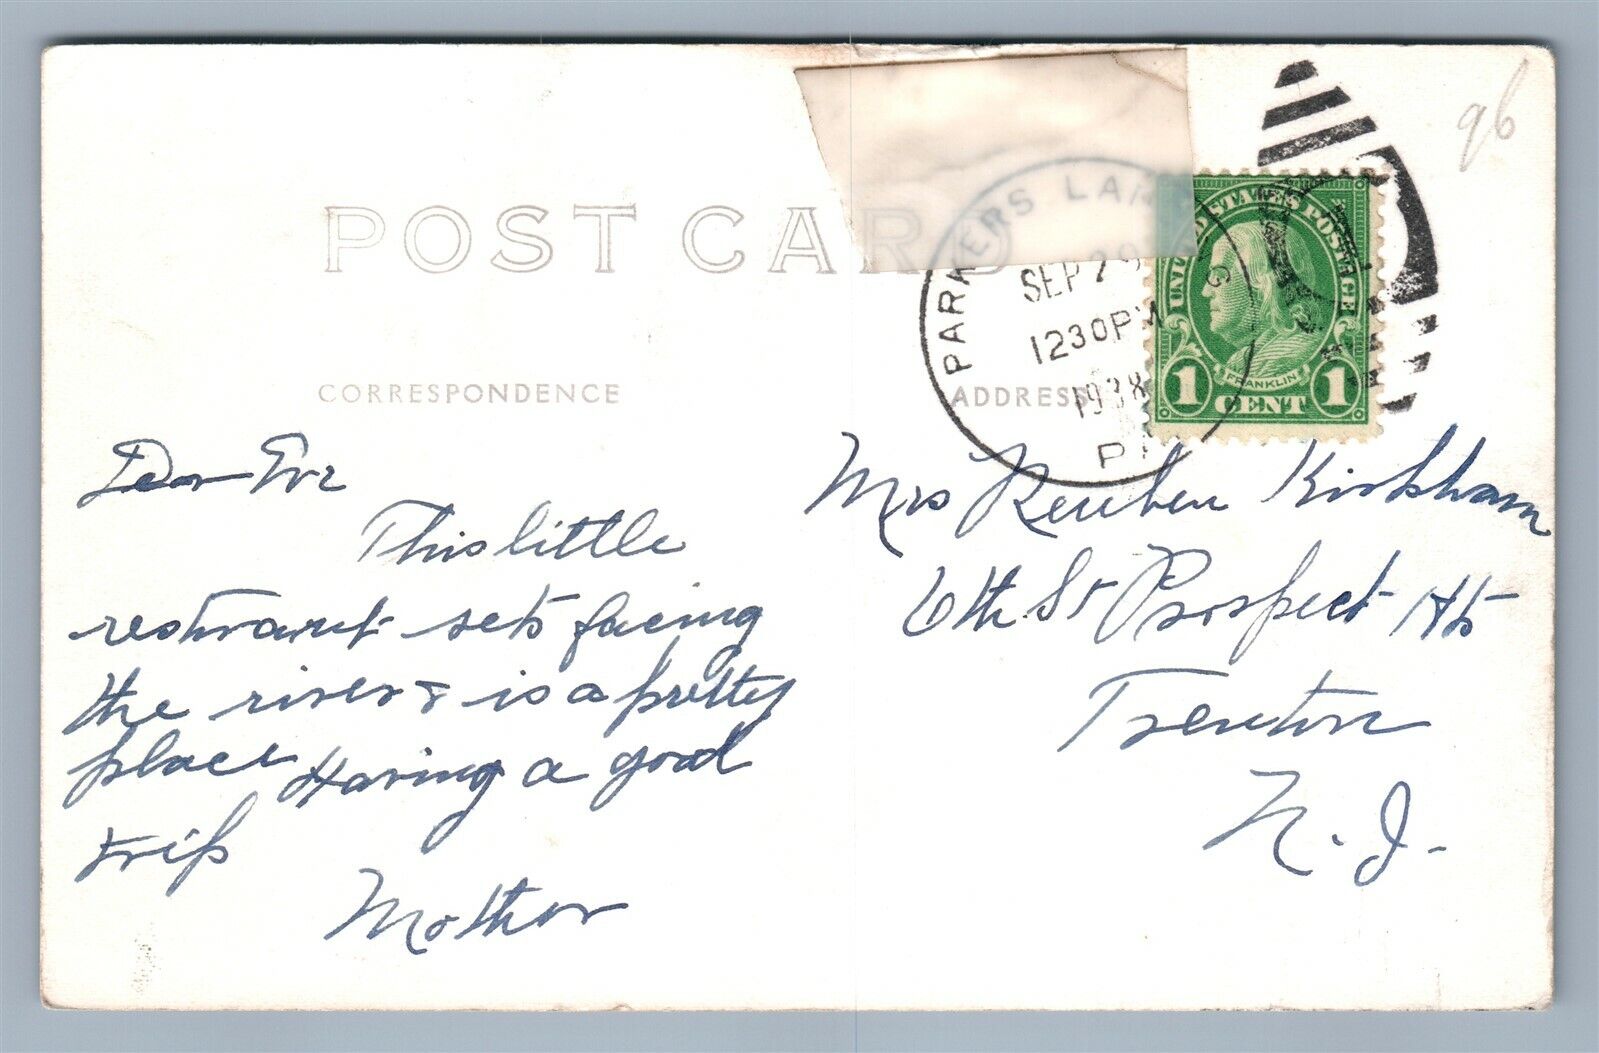 POST CARD
CORRESPONDENCE
ADDRESS
96
PARKERS LAN G
SEP 29
1230PM
1938
UNITED STATES POSTAGE
FRANKLIN
1 CENT 1
Dear Eve
This little
restraunt sets facing
the river & is a pretty
place Having a good
trip
Mother
Mrs Reuben Kirkham
6th St Prospect Hts
Trenton
N. J.